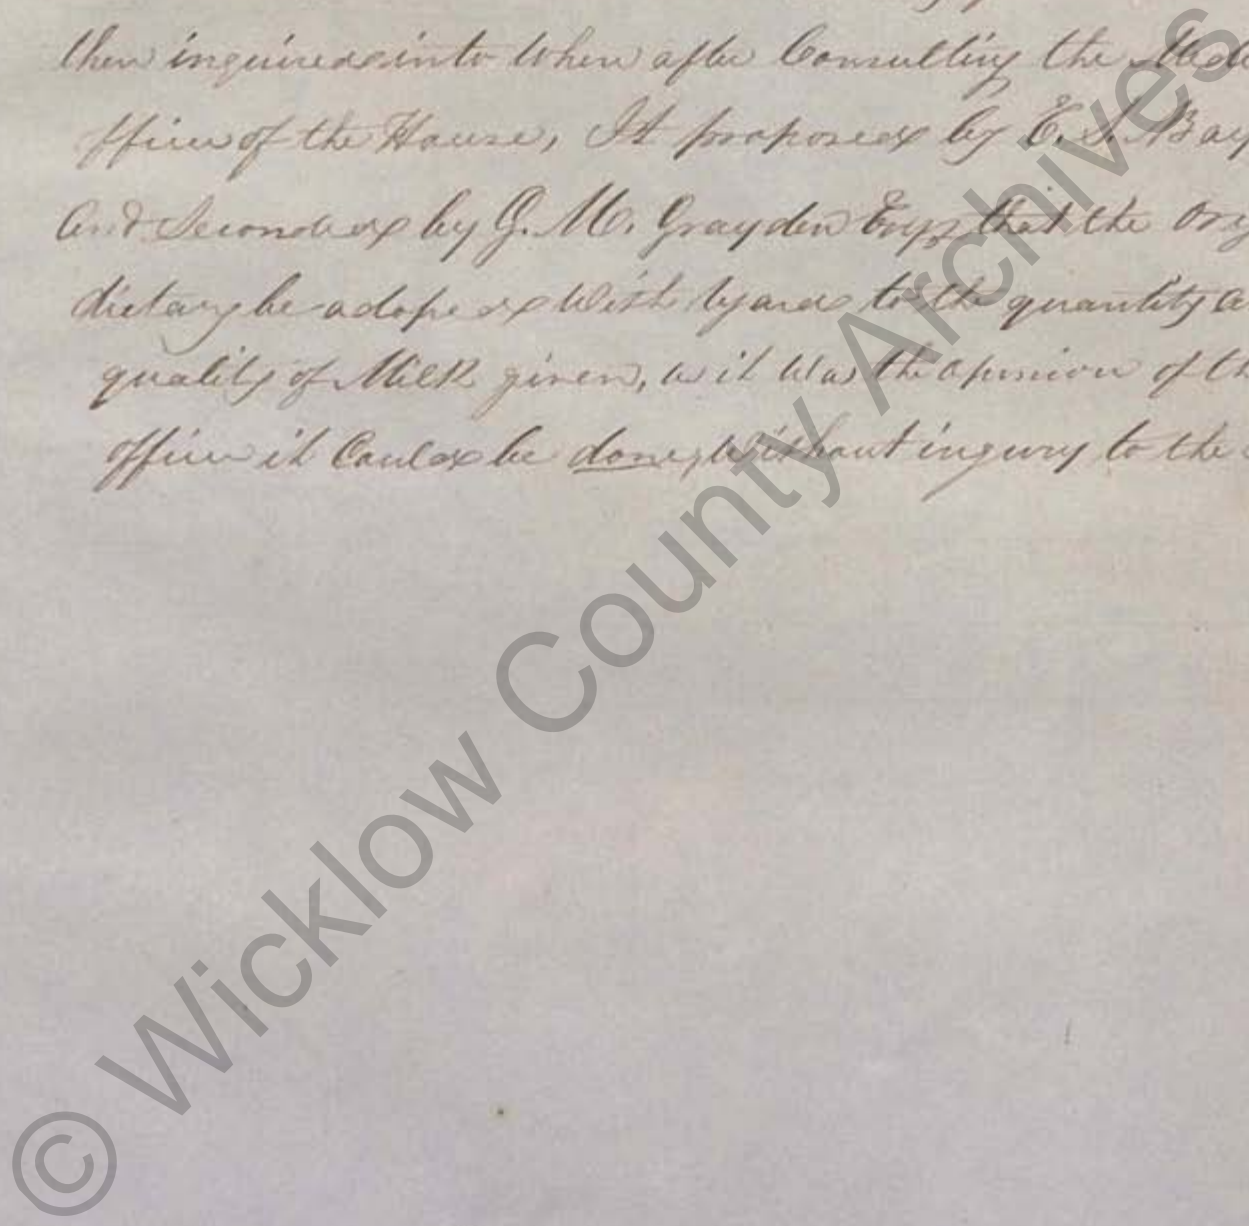 then inquired into when after Consulting the Med
officer of the House, It proposed by E. S. Bay
And Seconded by G. M. Grayden Esqr that the Orig
dietary be adoped With regard to the quantity a
quality of Milk given, as it Was the opinion of th
officer it Could be done, Without ingury to the
© Wicklow County Archives